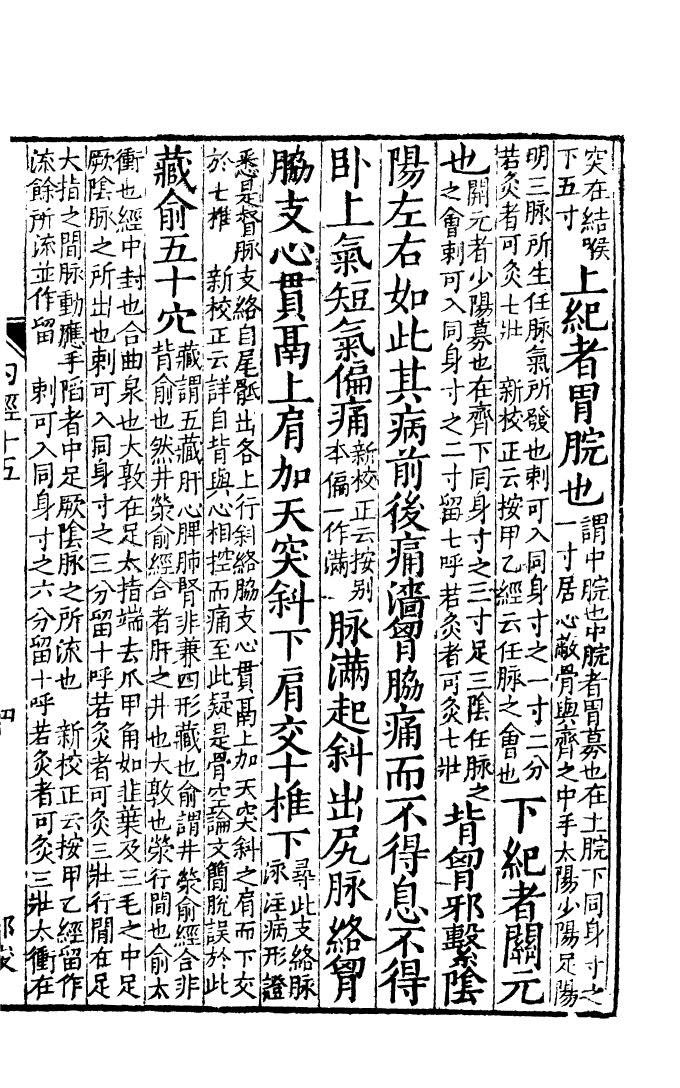 突在結喉
下五寸
上紀者胃脘也
謂中脘也中脘者胃募也在上脘下同身寸之
一寸居心蔽骨與齊之中手太陽少陽足陽
明三脉所生任脉氣所發也刺可入同身寸之一寸二分
若灸者可灸七壯 新校正云按甲乙經云任脉之會也
下紀者關元
也
關元者少陽募也在齊下同身寸之三寸足三陰任脉之
之會刺可入同身寸之二寸留七呼若灸者可灸七壯
背胷邪繫陰
陽左右如此其病前後痛濇胷脇痛而不得息不得
卧上氣短氣偏痛
新校正云按别
本偏一作滿
脉滿起斜出尻脉絡胷
脇支心貫鬲上肩加天突斜下肩交十椎下
尋此支絡脉
流注病形證
悉是督脉支絡自尾骶出各上行斜絡脇支心貫鬲上加天突斜之肩而下交
於七椎 新校正云詳自背與心相控而痛至此疑是骨空論文簡脫誤於此
藏俞五十穴
藏謂五藏肝心脾肺腎非兼四形藏也俞謂井滎俞經合非
背俞也然井滎俞經合者肝之井也大敦也滎行間也俞太
衝也經中封也合曲泉也大敦在足太指端去爪甲角如韭葉及三毛之中足
厥陰脉之所出也刺可入同身寸之三分留十呼若灸者可灸三壯行間在足
大指之間脉動應手陷者中足厥陰脉之所流也 新校正云按甲乙經留作
流餘所流並作留 刺可入同身寸之六分留十呼若灸者可灸三壯太衝在
内經十五
四